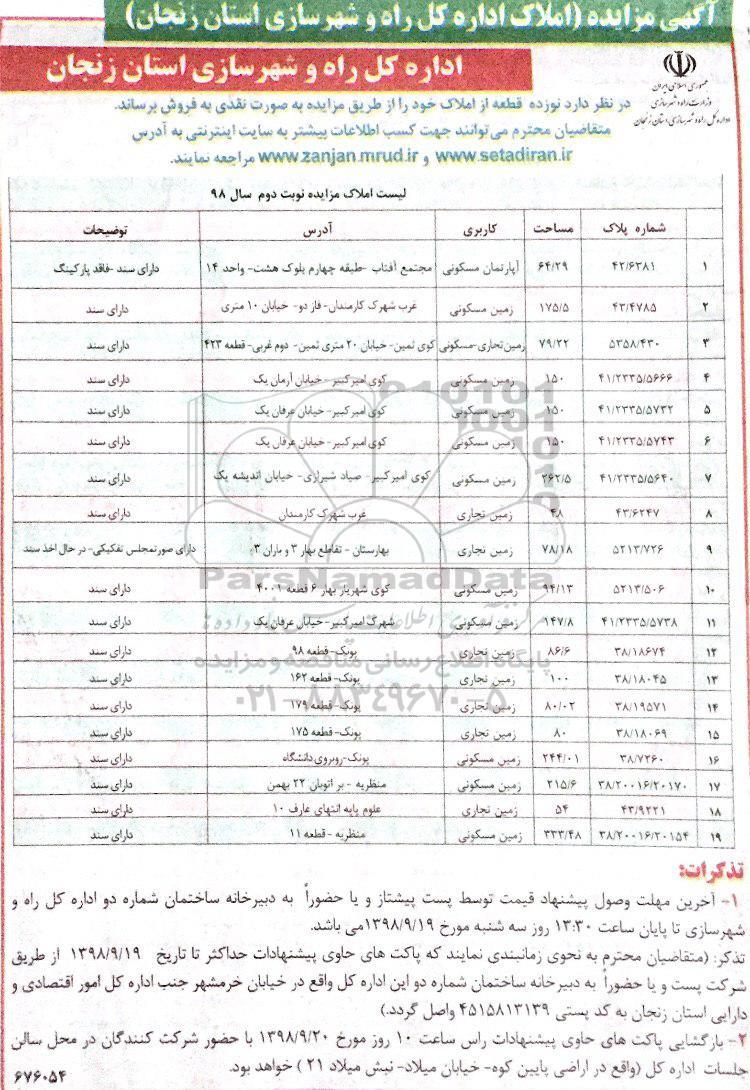 آگهی مزایده (املاک اداره کل راه و شهرسازی استان زنجان)
اداره کل راه و شهرسازی استان زنجان
جمهوری اسلامی ایران
وزارت راه و شهرسازی
اداره کل راه و شهرسازی استان زنجان
در نظر دارد نوزده قطعه از املاک خود را از طریق مزایده به صورت نقدی به فروش برساند.
متقاضیان محترم می‌توانند جهت کسب اطلاعات پیشتر به سایت اینترنتی به آدرس
www.setadiran.ir و www.zanjan.mrud.ir مراجعه نمایند.
لیست املاک مزایده نوبت دوم سال ۹۸
شماره پلاک کاربری مساحت آدرس توضیحات
۱ ۴۲/۶۳۸۱ آپارتمان مسکونی ۶۴/۲۹ مجتمع آفتاب -طبقه چهارم بلوک هشت- واحد ۱۴ دارای سند -فاقد پارکینگ
۲ ۴۳/۴۷۸۵ زمین مسکونی ۱۷۵/۵ غرب شهرک کارمندان- فاز دو- خیابان ۱۰ متری دارای سند
۳ ۵۳۵۸/۴۳۰ زمین تجاری-مسکونی ۷۹/۲۲ کوی ثمین- خیابان ۲۰ متری ثمین- دوم غربی- قطعه ۴۲۳ دارای سند
۴ ۴۱/۲۳۳۵/۵۶۶۶ زمین مسکونی ۱۵۰ کوی امیرکبیر- خیابان آرمان یک دارای سند
۵ ۴۱/۲۳۳۵/۵۷۳۲ زمین مسکونی ۱۵۰ کوی امیرکبیر- خیابان عرفان یک دارای سند
۶ ۴۱/۲۳۳۵/۵۷۴۳ زمین مسکونی ۱۵۰ کوی امیرکبیر- خیابان عرفان یک دارای سند
۷ ۴۱/۲۳۳۵/۵۶۴۰ زمین مسکونی ۲۶۲/۵ کوی امیرکبیر- صیاد شیرازی- خیابان اندیشه یک دارای سند
۸ ۴۳/۶۲۴۷ زمین تجاری ۴۸ غرب شهرک کارمندان دارای سند
۹ ۵۲۱۳/۷۲۶ زمین تجاری ۷۸/۱۸ بهارستان - تقاطع بهار ۳ و باران ۳ دارای صورتمجلس تفکیکی- در حال اخذ سند
۱۰ ۵۲۱۳/۵۰۶ زمین مسکونی ۹۴/۱۳ کوی شهریار بهار ۶ قطعه ۴۰۰۱ دارای سند
۱۱ ۴۱/۲۳۳۵/۵۷۳۸ زمین مسکونی ۱۴۷/۸ شهرک امیرکبیر- خیابان عرفان یک دارای سند
۱۲ ۳۸/۱۸۶۷۴ زمین تجاری ۸۶/۶ پونک- قطعه ۹۸ دارای سند
۱۳ ۳۸/۱۸۰۴۵ زمین تجاری ۱۰۰ پونک- قطعه ۱۶۲ دارای سند
۱۴ ۳۸/۱۹۵۷۱ زمین تجاری ۸۰/۰۲ پونک- قطعه ۱۷۹ دارای سند
۱۵ ۳۸/۱۸۰۶۹ زمین تجاری ۸۰ پونک- قطعه ۱۷۵ دارای سند
۱۶ ۳۸/۷۲۶۰ زمین مسکونی ۲۴۴/۰۱ پونک-روبروی دانشگاه دارای سند
۱۷ ۳۸/۲۰۰۱۶/۲۰۱۷۰ زمین مسکونی ۲۱۵/۶ منظریه - بر اتوبان ۲۲ بهمن دارای سند
۱۸ ۴۳/۹۲۲۱ زمین تجاری ۵۴ علوم پایه انتهای عارف ۱۰ دارای سند
۱۹ ۳۸/۲۰۰۱۶/۲۰۱۵۴ زمین مسکونی ۳۳۳/۴۸ منظریه - قطعه ۱۱ دارای سند
ParsNamadData
پایگاه اطلاع رسانی مناقصه و مزایده
۰۲۱-۸۸۳۴۹۶۷۰-۵
تذکرات:
۱- آخرین مهلت وصول پیشنهاد قیمت توسط پست پیشتاز و یا حضوراً به دبیرخانه ساختمان شماره دو اداره کل راه و
شهرسازی تا پایان ساعت ۱۳:۳۰ روز سه شنبه مورخ ۱۳۹۸/۹/۱۹می باشد.
تذکر: (متقاضیان محترم به نحوی زمانبندی نمایند که پاکت های حاوی پیشنهادات حداکثر تا تاریخ ۱۳۹۸/۹/۱۹ از طریق
شرکت پست و یا حضوراً به دبیرخانه ساختمان شماره دو این اداره کل واقع در خیابان خرمشهر جنب اداره کل امور اقتصادی و
دارایی استان زنجان به کد پستی ۴۵۱۵۸۱۳۱۳۹ واصل گردد.)
۲- بازگشایی پاکت های حاوی پیشنهادات راس ساعت ۱۰ روز مورخ ۱۳۹۸/۹/۲۰ با حضور شرکت کنندگان در محل سالن
جلسات اداره کل (واقع در اراضی پایین کوه- خیابان میلاد- نبش میلاد ۲۱ ) خواهد بود.
۶۷۶۰۵۴